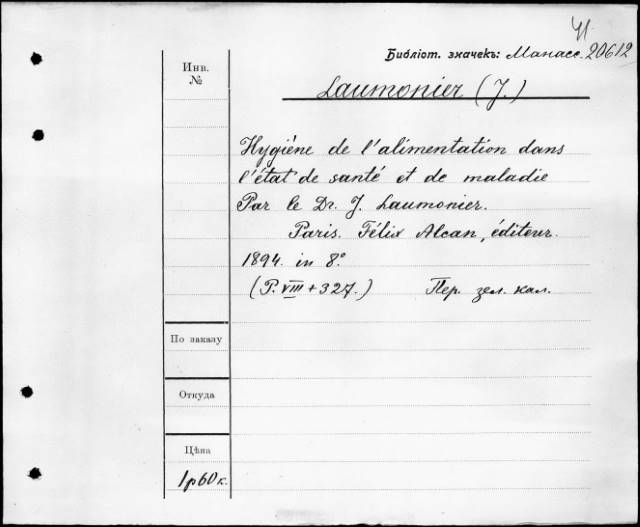 И
Библіот. значекъ: Манасс. 20612
Инв.
№
Laumonier (J.)
Hygiène de l'alimentation dans
l'état de santé et de maladie
Par le Dr. J. Laumonier.
Paris. Félix Alcan, éditeur.
1894. in 8°
(P. VIII + 327.) Пер. зел. кал.
По заказу
Откуда
Цѣна
1 р 60 к.